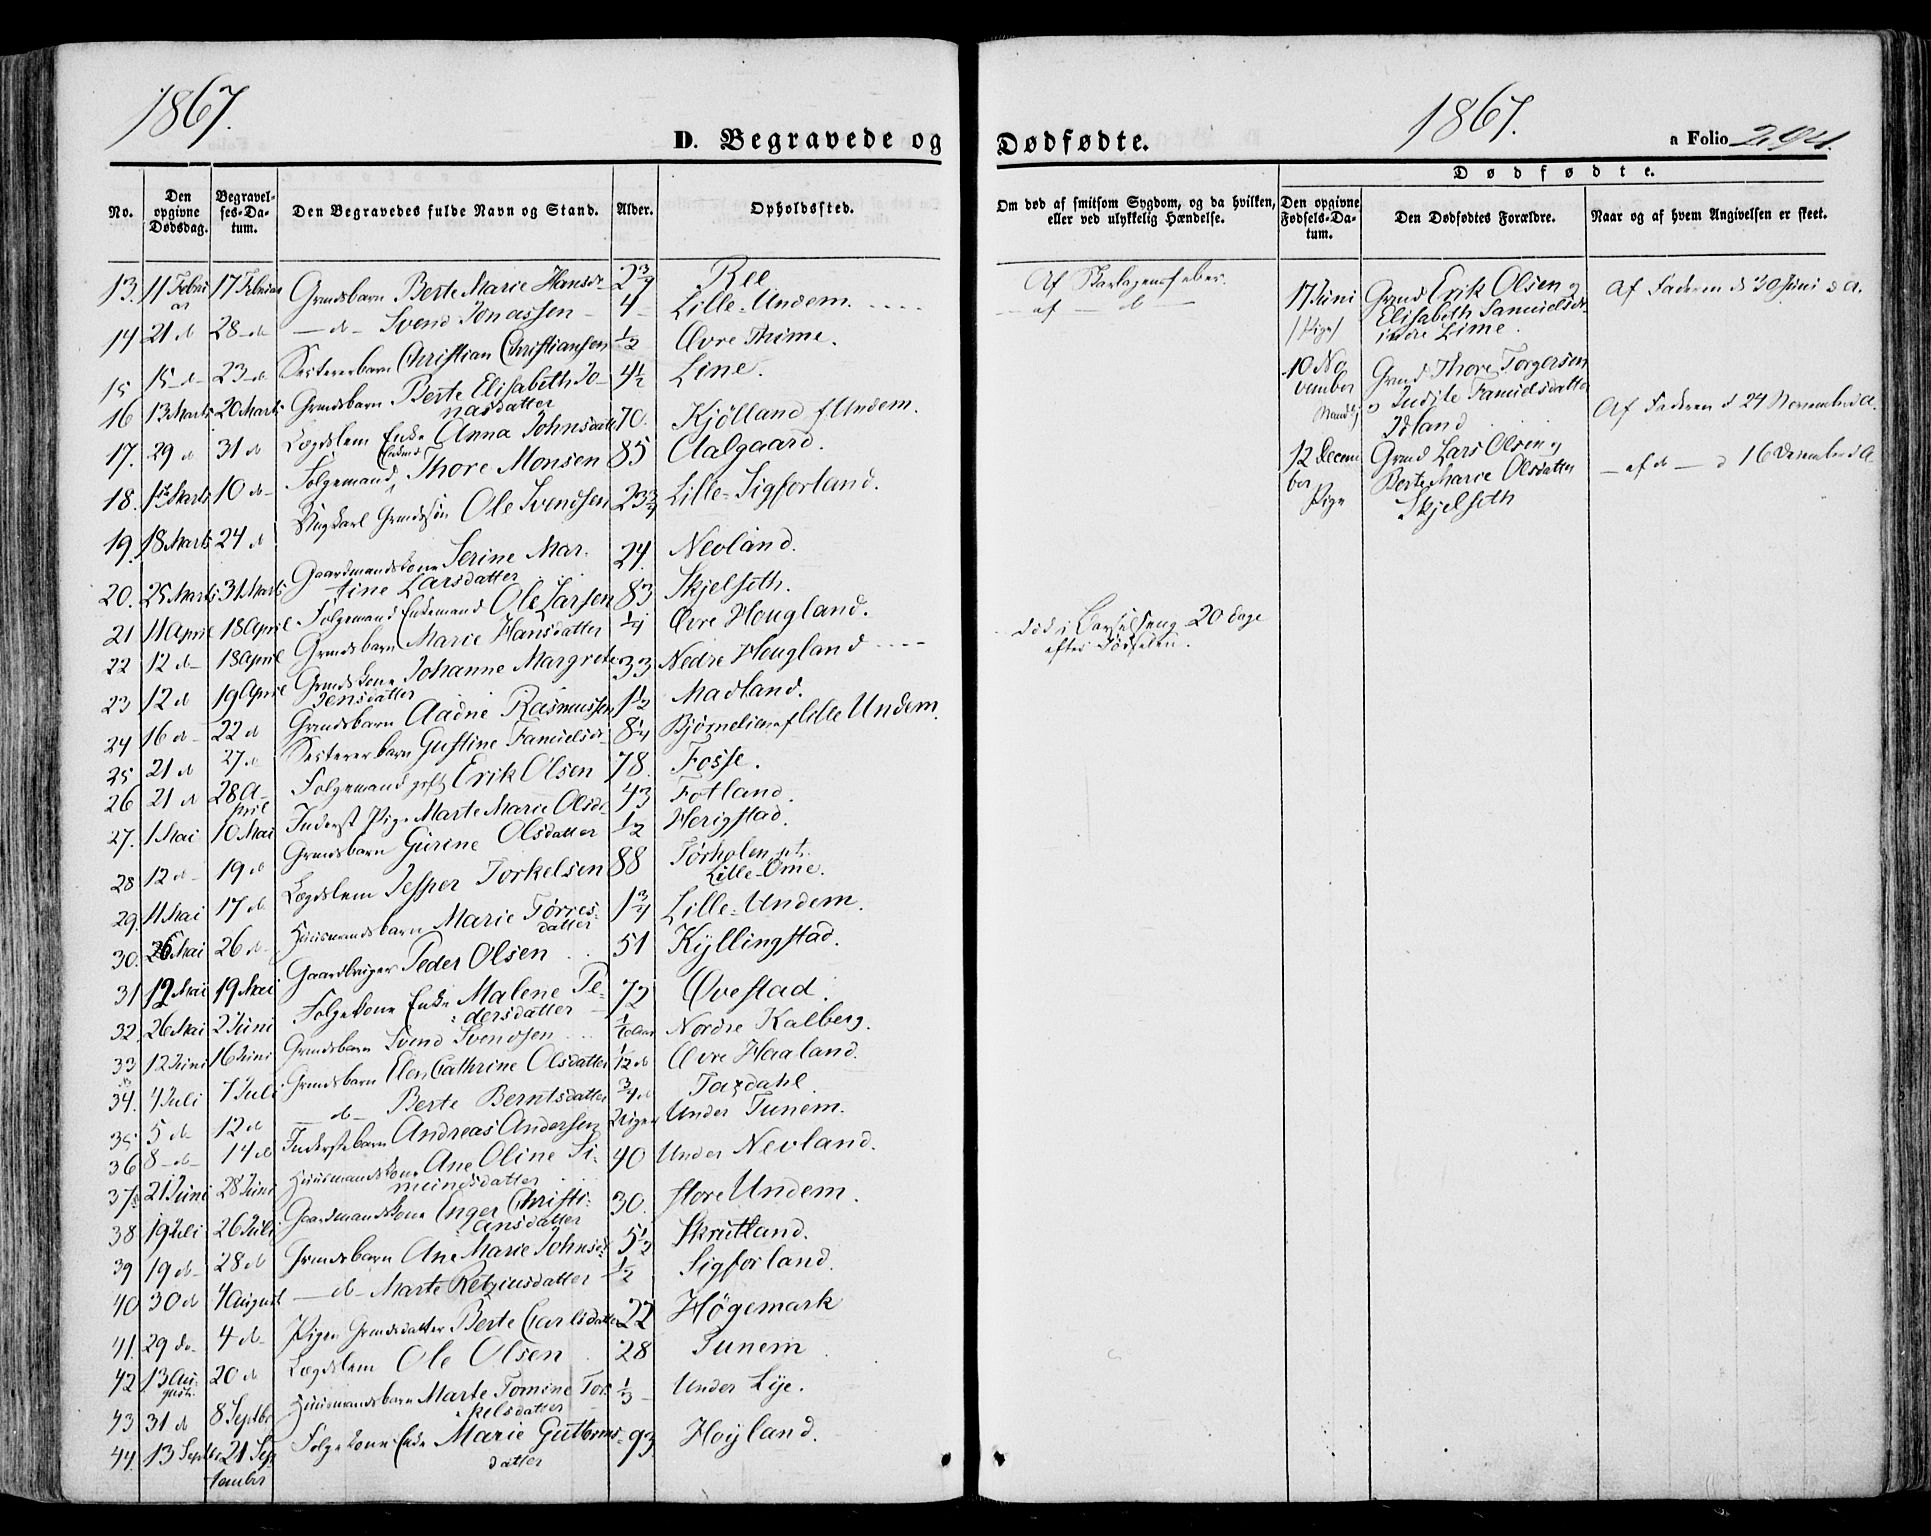 1867.
D. Begravede og
No.
Den opgivne Dødsdag.
Begravelses-Datum.
Den Begravedes fulde Navn og Stand.
Alder.
Opholdssted.
13. 11 Februar 17 Februar Grmdsbarn Berte Marie Hansdr 2 3/4 Ree
14 21 do 28 do — do — Svend Jonassen 4 Lille-Undem.
15 15 do 23 do Christian Christiansen 1/2 Øvre Thime.
16 13 Marts 20 Marts Grmdsbarn Berte Elisabeth Jonasdatter 4 1/2 Line.
17. 29 do 31 do Lægdslem Enke Anna Johnsdatter 70. Kjølland / Undem.
18. Marts 10 do Folgemand Enkemd Thore Monsen 85 Aalgaard.
19. 18 Marts 24 do Ungkarl Grmdssøn Ole Svendsen 23 3/4 Lille-Sigforland.
20. 25 Marts 31 Marts Gaardmandskone Serine Martine Larsdatter 24. Nevland.
21 11 April 18 April Folgemand Enkemand Ole Larsen 83 Skjelseth.
22 12 do 18 April Grmdsbarn Marie Hansdatter 1/4 Øvre Hougland.
23 12 do 19 April Grmdskone Johanne Margrete Jensdatter 33 Nedre Hougland
24 16 do 22 do Grmdsbarn Aadne Rasmussen 1 1/2 Madland.
25 21 do 27 do Gustine 8 1/4 Bjørnelien af Lille Undem.
26 21 do 28 April Folgemand gift Erik Olsen 78. Fosse.
27. 1 Mai 10 Mai Inderst Pige Marte Marie Olsdr 43 Fotland.
28 12 do 19 do Grmdsbarn Gurine Olsdatter 1/2 Herigstad.
29. 11 Mai 17 do Lægdslem Jesper Torkelsen 88 Tørholen p.t. Lille-Ome.
30. 26 Mai 26 do Huusmandsbarn Marie Tørresdatter 1 3/4 Lille-Undem.
31 12 Mai 19 Mai Gaardbruger Peder Olsen 51 Kyllingstad.
32. 26 Mai 2 Juni Folgekone Enke Malene Pedersdatter 72 Ovestad.
33 12 Juni 16 Juni Grmdsbarn Svend Svendsen Nordre Kalberg.
34. 4 Juli 7 Juli Grmdsbarn Elen Cathrine Olsdatter 1/12 do Øvre Haaland.
35 5 do 12 do do Berte Berntsdatter 3/4 do Taxdahl.
36 8 do 14 do Inderstebarn Andreas Andersen Under Tunem.
37. 21 Juni 28 Juni Huusmandskone Ane Oline Simeinsdatter 40 Under Nevland.
38 19 Juli 26 Juli Gaardmandskone Inger Christiansdatter 30. store Undem.
39 19 do 28 do Grmdsbarn Ane Marie Johnsdr 5 1/2 Skrutland.
40 30 do 4 August — do — Marte Retziusdatter 1/2 Sigforland.
41. 29 do 4 do Pigen Grmdsdatter Berte Carlsdatter 22 Høgemark
42 13 August 20 do Lægdslem Ole Olsen 28 Tunem
43 31 do 8 Septbr Huusmandsbarn Marte Tomine Torkelsdatter 1/3 Under Lye.
44. 13 Septbr 21 September Folgekone Enke Marie Guttormsdatter 93 Hoyland.
1867.
Dødfødte.
a Folio 294.
Om død af smitsom Sygdom, og da hvilken, eller ved ulykkelig Hændelse.
Dødfødte.
Den opgivne Fødsels-Datum.
Den Dødfødtes Forældre.
Naar og af hvem Angivelsen er skeet.
Af Skarlagensfeber.
af — do —
død i Barselseng 20 dage
efter Fødselen.
17 Juni
(Pige)
Grmd Erik Olsen og
Elisabeth Samuelsdr
indre Lime.
Af Faderen d 30 Juni s. A.
10 November
Grmd Thore Torgersen
Idland
Af Faderen d 24 November s. A.
12 December
Pige
Grmd Lars Olsen og
Berte Marie Olsdatter
Skjelseth
— af do — d 16 December s. A.